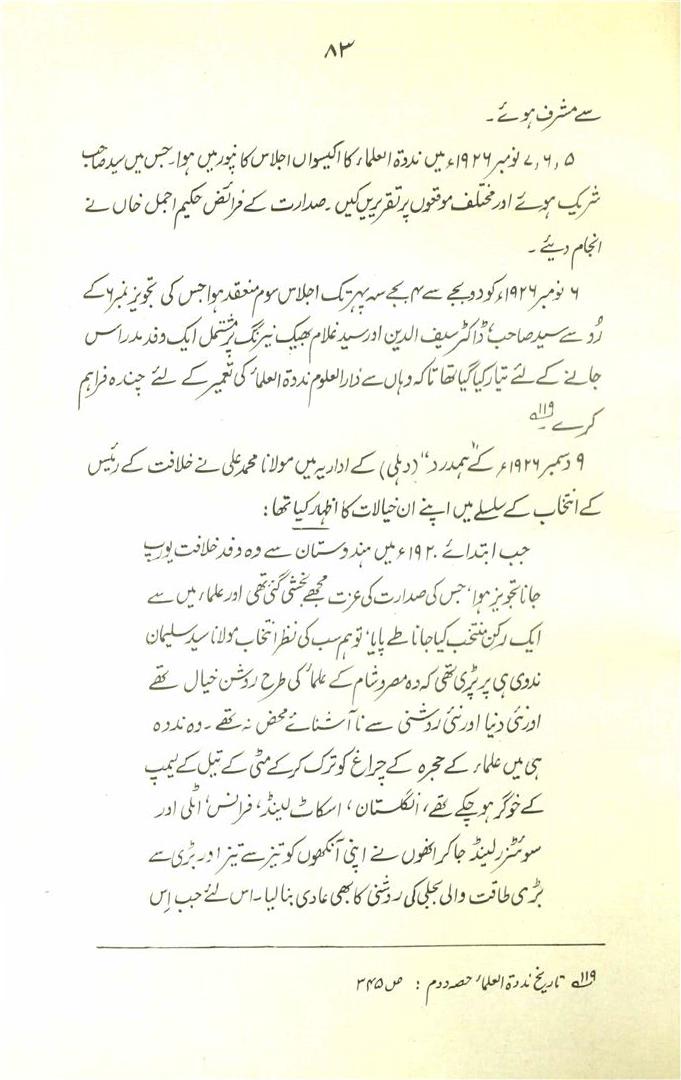 ۸۳
سے مشرف ہوئے۔
۵، ۶، ۷ نومبر ۱۹۲۶ء میں ندوۃ العلماء کا اکیسواں اجلاس کانپور میں ہوا۔ جس میں سید صاحب
شریک ہوئے اور مختلف موقعوں پر تقریریں کیں۔ صدارت کے فرائض حکیم اجمل خاں نے
انجام دیئے۔
۶ نومبر ۱۹۲۶ء کو دو بجے سے ۴ بجے سہ پہر تک اجلاس سوم منعقد ہوا جس کی تجویز نمبر ۶ کے
رُو سے سید صاحب، ڈاکٹر سیف الدین اور سید غلام بھیک نیرنگ پر مشتمل ایک وفد مدراس
جانے کے لئے تیار کیا گیا تھا تاکہ وہاں سے دارالعلوم ندوۃ العلماء کی تعمیر کے لئے چندہ فراہم
کرے۔ ۱۱۹
۹ دسمبر ۱۹۲۶ء کے "ہمدرد" (دہلی) کے اداریہ میں مولانا محمد علی نے خلافت کے رئیس
کے انتخاب کے سلسلے میں اپنے ان خیالات کا اظہار کیا تھا:
جب ابتدائے ۱۹۲۰ء میں ہندوستان سے وہ وفد خلافت یورپ
جانا تجویز ہوا، جس کی صدارت کی عزت مجھے بخشی گئی تھی اور علماء میں سے
ایک رکن منتخب کیا جانا طے پایا، تو ہم سب کی نظر انتخاب مولانا سید سلیمان
ندوی ہی پر پڑی تھی کہ وہ مصر و شام کے علماء کی طرح روشن خیال تھے
اور نئی دنیا اور نئی روشنی سے نا آشنائے محض نہ تھے۔ وہ ندوہ
ہی میں علماء کے حجرہ کے چراغ کو ترک کر کے مٹی کے تیل کے لیمپ
کے خوگر ہو چکے تھے، انگلستان، اسکاٹ لینڈ، فرانس، اٹلی اور
سوئٹزرلینڈ جا کر انھوں نے اپنی آنکھوں کو تیز سے تیز اور بڑی سے
بڑی طاقت والی بجلی کی روشنی کا بھی عادی بنا لیا۔ اس لئے جب اِس
۱۱۹ تاریخ ندوۃ العلماء حصہ دوم : ص ۳۴۵